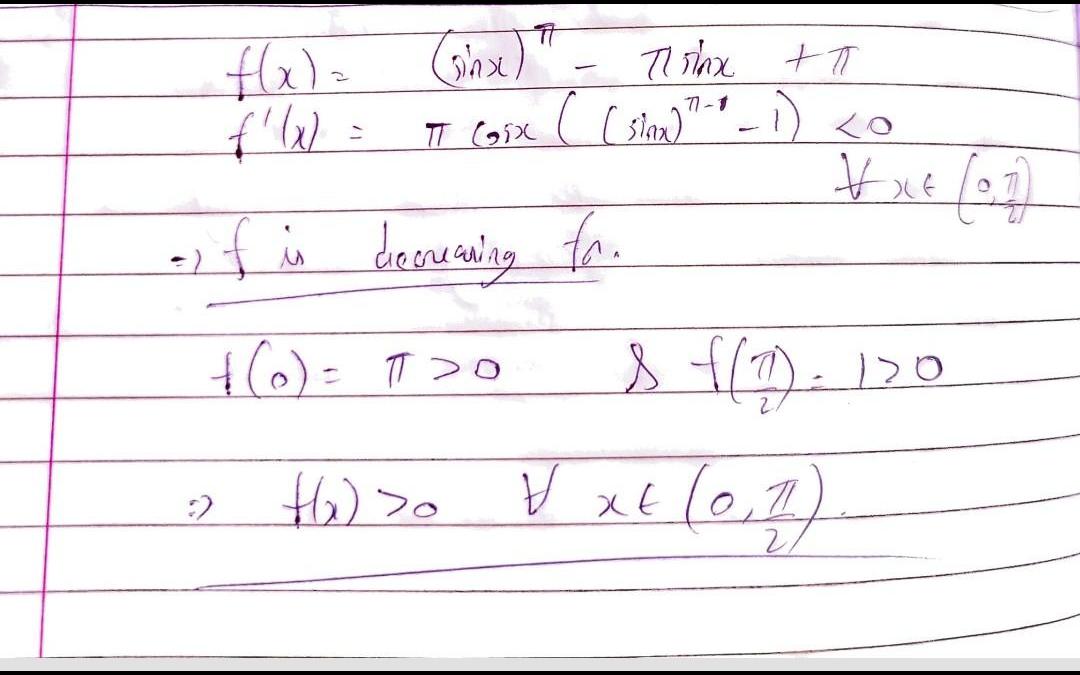 f(x) = (sinx)^π - π sinx + π
f'(x) = π cosx ( (sinx)^{π-1} - 1) <0
∀ x ∈ (0, π/2)
=> f is decreasing fn.
f(0) = π > 0 & f(π/2) = 1>0
=> f(x) >0 ∀ x ∈ (0, π/2).